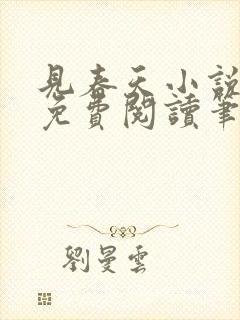 見春天小說
免費閱讀筆
劉曼雲